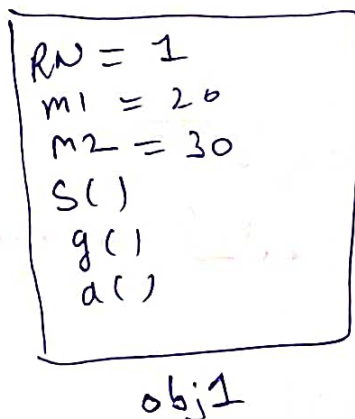 RN = 1
m1 = 20
m2 = 30
S()
g()
a()
obj1